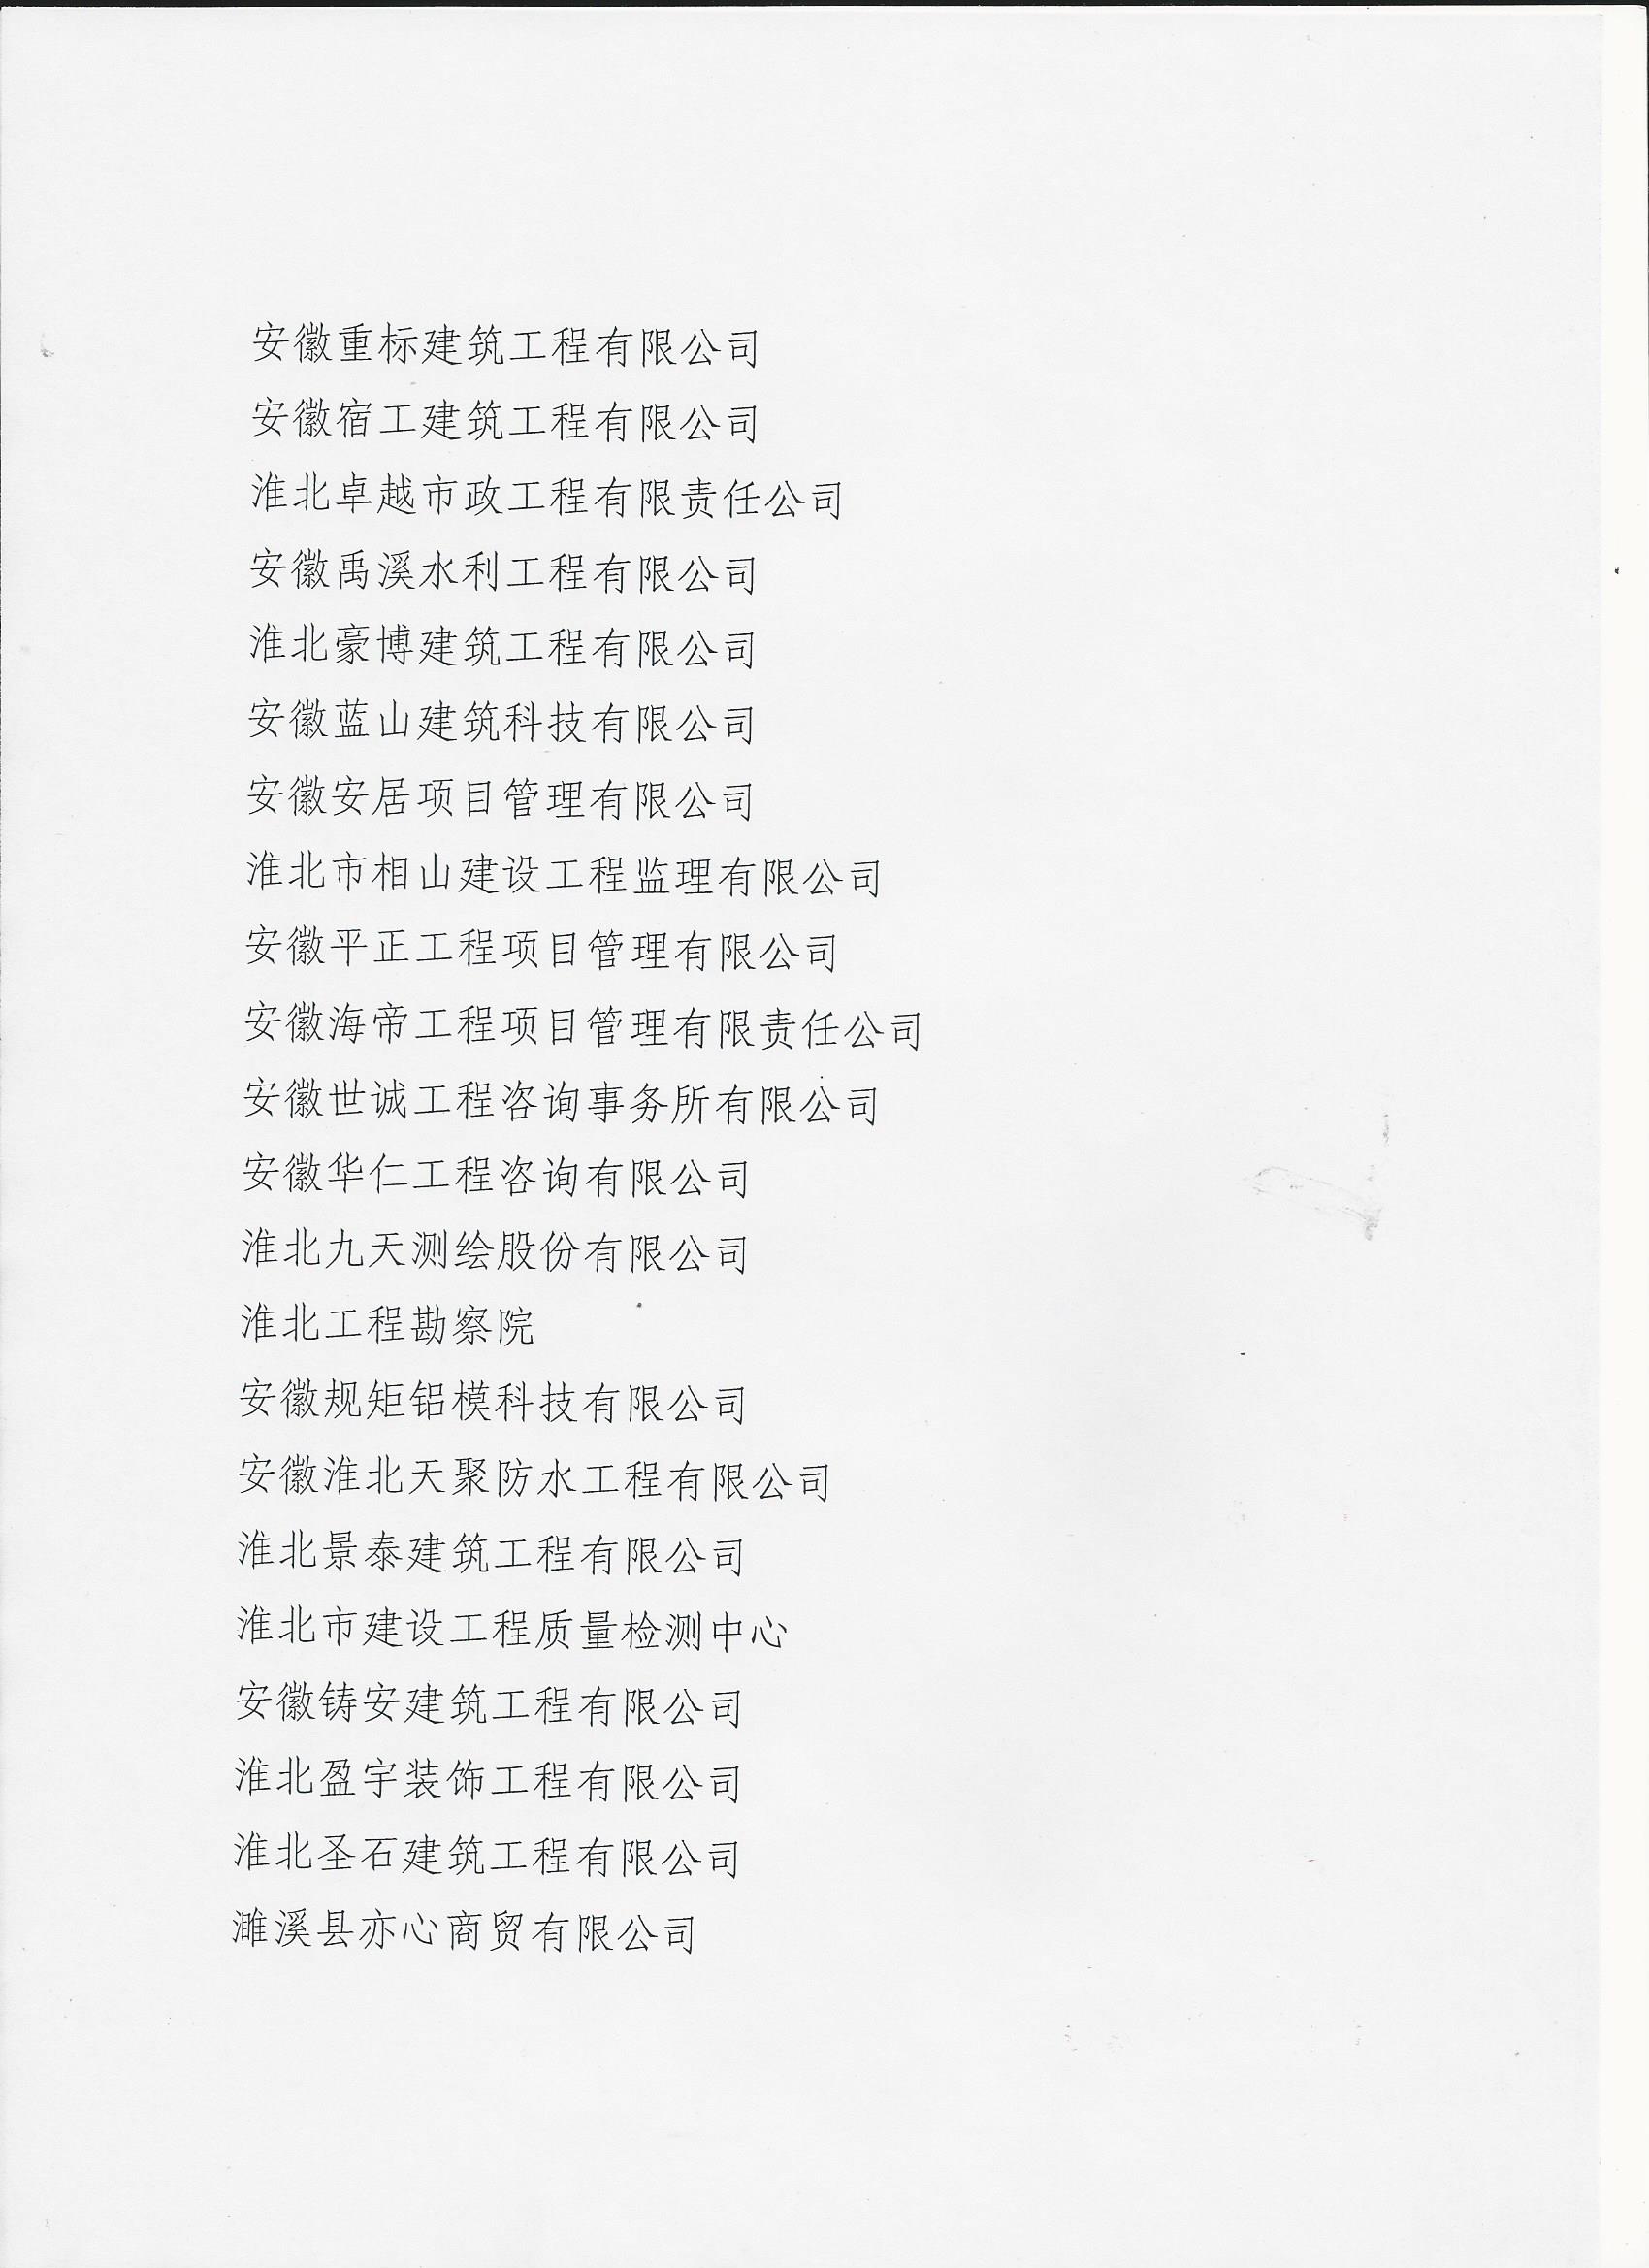 安徽重标建筑工程有限公司
安徽宿工建筑工程有限公司
淮北卓越市政工程有限责任公司
安徽禹溪水利工程有限公司
淮北豪博建筑工程有限公司
安徽蓝山建筑科技有限公司
安徽安居项目管理有限公司
淮北市相山建设工程监理有限公司
安徽平正工程项目管理有限公司
安徽海帝工程项目管理有限责任公司
安徽世诚工程咨询事务所有限公司
安徽华仁工程咨询有限公司
淮北九天测绘股份有限公司
淮北工程勘察院
安徽规矩铝模科技有限公司
安徽淮北天聚防水工程有限公司
淮北景泰建筑工程有限公司
淮北市建设工程质量检测中心
安徽铸安建筑工程有限公司
淮北盈宇装饰工程有限公司
淮北圣石建筑工程有限公司
濉溪县亦心商贸有限公司